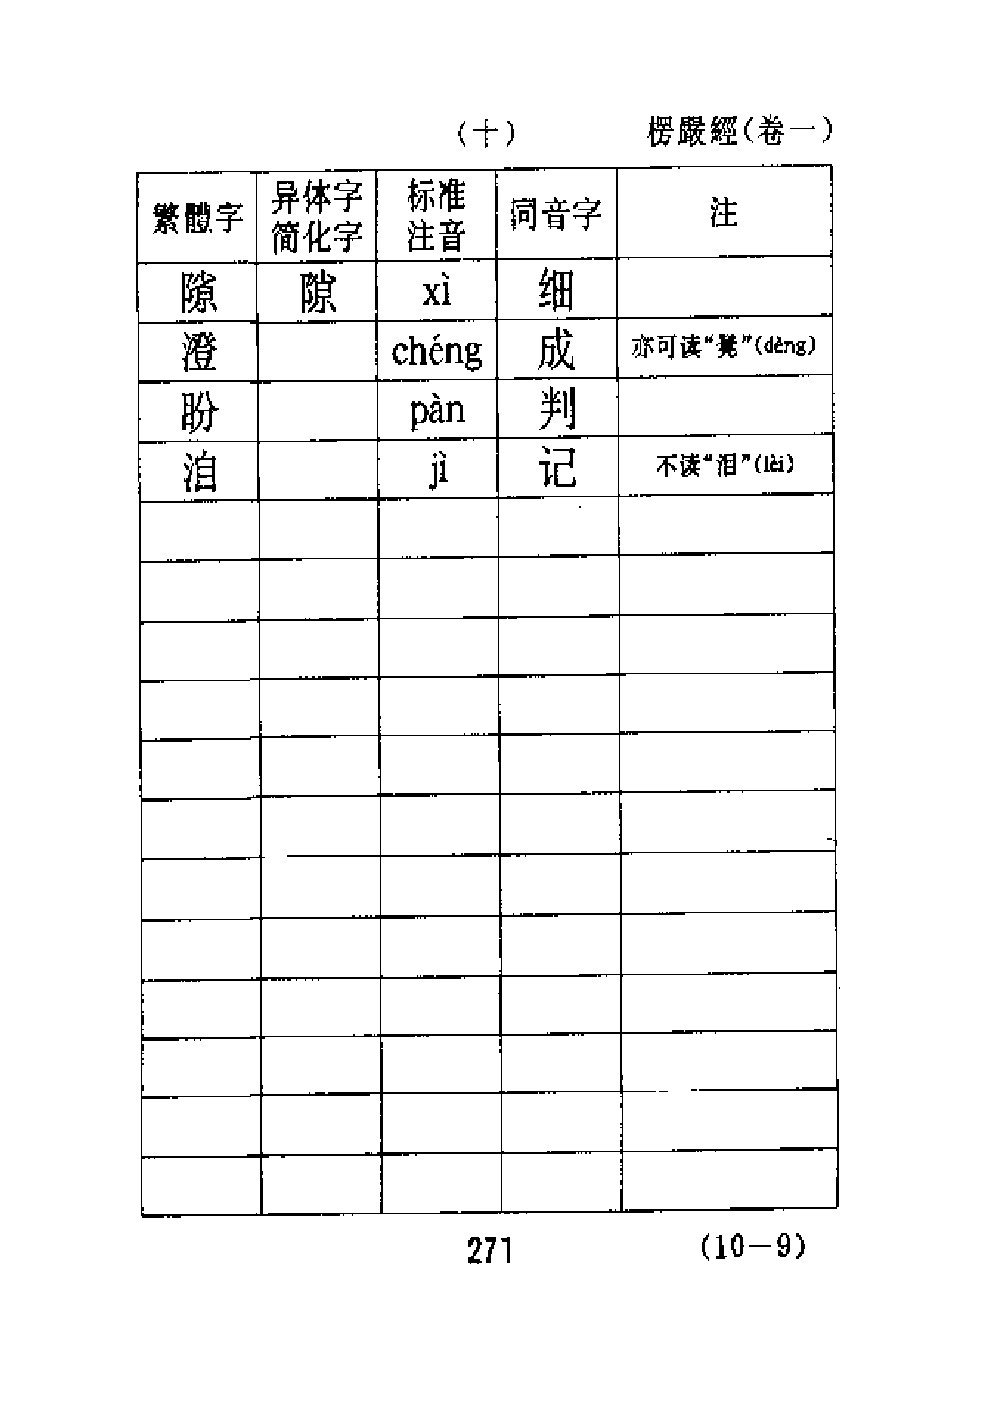 (十) 楞嚴經(卷一)
繁體字 异体字 标准 同音字 注
简化字 注音
隙 隙 xì 细
澄 chéng 成 亦可读“凳”(dèng)
盼 pàn 判
洎 jì 记 不读“泪”(lèi)
271 (10－9)